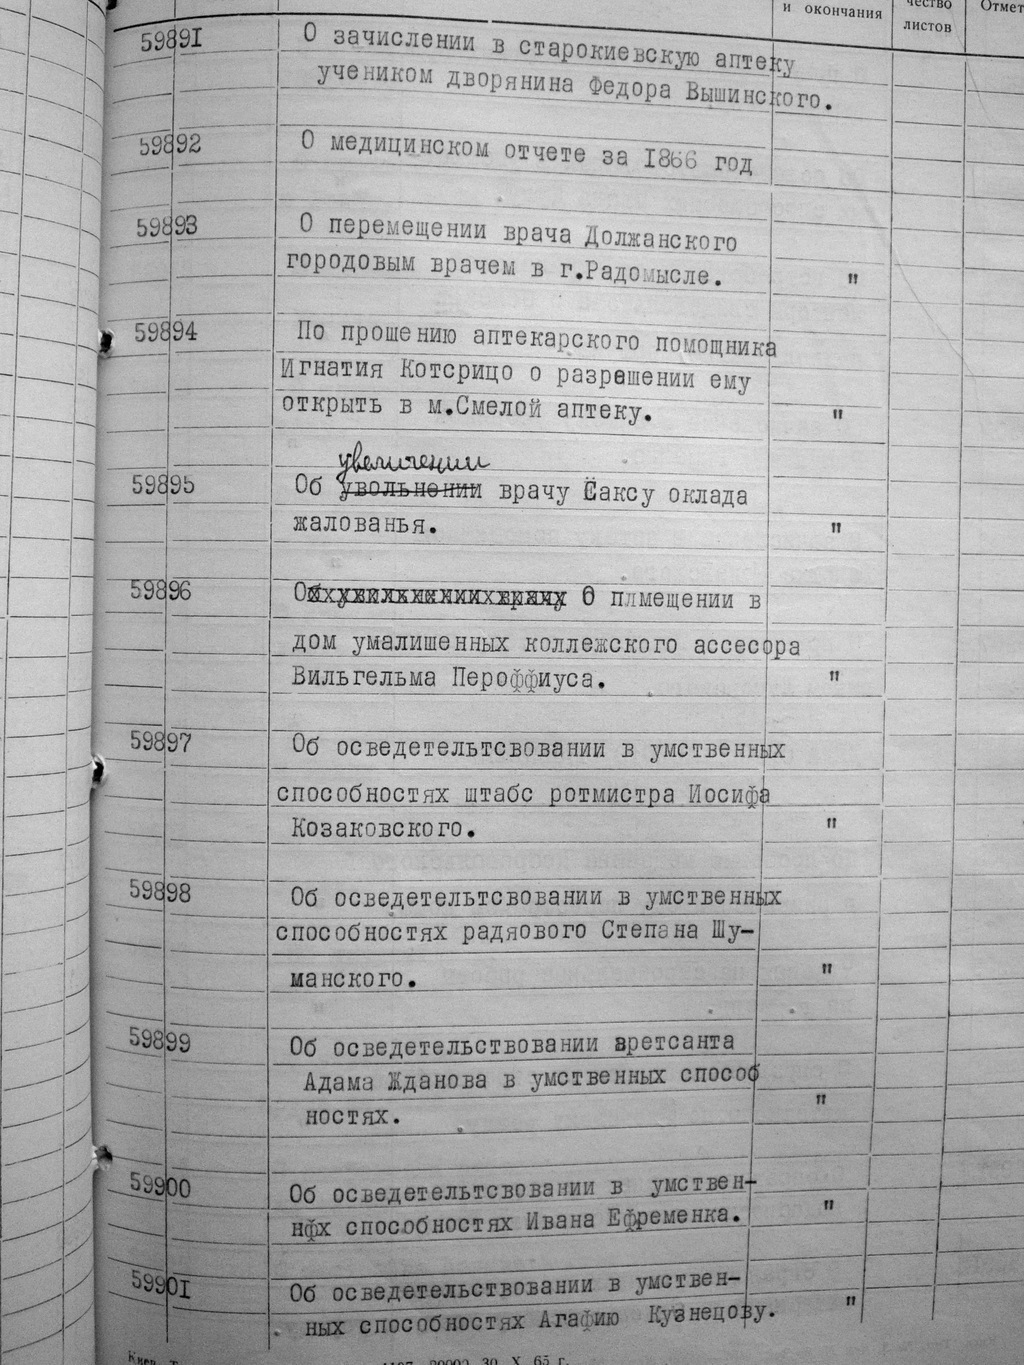 и окончания
чество
листов
Отмет
59891 О зачислении в старокиевскую аптеку
учеником дворянина Федора Вышинского.
59892 О медицинском отчете за 1866 год
59893 О перемещении врача Должанского
городовым врачем в г.Радомысле. "
59894 По прошению аптекарского помощника
Игнатия Котсрицо о разрешении ему
открыть в м.Смелой аптеку. "
увеличении
59895 Об увольнении врачу Саксу оклада
жалованья. "
59896 О плмещении в
дом умалишенных коллежского ассесора
Вильгельма Пероффиуса. "
59897 Об осведетельтсвовании в умственных
способностях штабс ротмистра Иосифа
Козаковского. "
59898 Об осведетельтсвовании в умственных
способностях радяового Степана Шу-
манского. "
59899 Об осведетельствовании аретсанта
Адама Жданова в умственных способ
ностях. "
59900 Об осведетельтсвовании в умствен-
нфх способностях Ивана Ефременка. "
59901 Об осведетельствовании в умствен-
ных способностях Агафию Кузнецову. "
30 X 65 г.